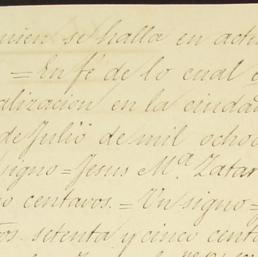 se halla en
= En fé de lo cual
en la ciudad
de Julio de mil ocho
signo = Jesus M.ª Zatar
centavos. = Un signo =
setenta y cinco cent